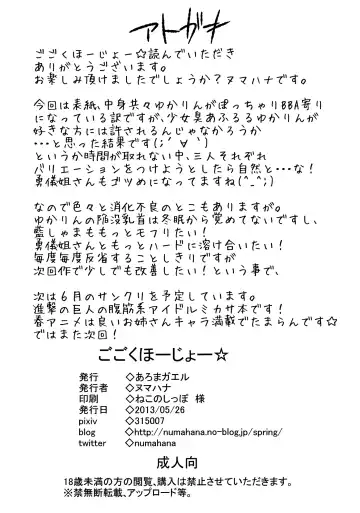 アトガキ
ごごくほーじょー☆読んでいただき
ありがとうございます。
お楽しみ頂けましたでしょうか？ヌマハナです。
今回は表紙、中身共々ゆかりんがぽっちゃりBBA寄り
になっている訳ですが、少女臭あふるるゆかりんが
好きな方には許されるんじゃなかろうか
…と思った結果です(；´∀｀)
というか時間が取れない中、三人それぞれ
バリエーションをつけようとしたら自然と…な！
勇儀姐さんもゴツめになってますね(^_^;)
なので色々と消化不良のとこもありますが。
ゆかりんの陥没乳首は冬眠から覚めてないですし、
藍しゃまももっとモフりたい！
勇儀姐さんともっとハードに溶け合いたい！
毎度毎度反省することしきりですが
次回作で少しでも改善したい！という事で、
次は６月のサンクリを予定しています。
進撃の巨人の腹筋系アイドルミカサ本です！
春アニメは良いお姉さんキャラ満載でたまらんです☆
ではまた次回！
ごごくほーじょー☆
発行 ◇あろまガエル
発行者 ◇ヌマハナ
印刷 ◇ねこのしっぽ 様
発行日 ◇2013/05/26
pixiv ◇315007
blog ◇http://numahana.no-blog.jp/spring/
twitter ◇numahana
成人向
18歳未満の方の閲覧、購入は禁止させていただきます。
※禁無断転載、アップロード等。